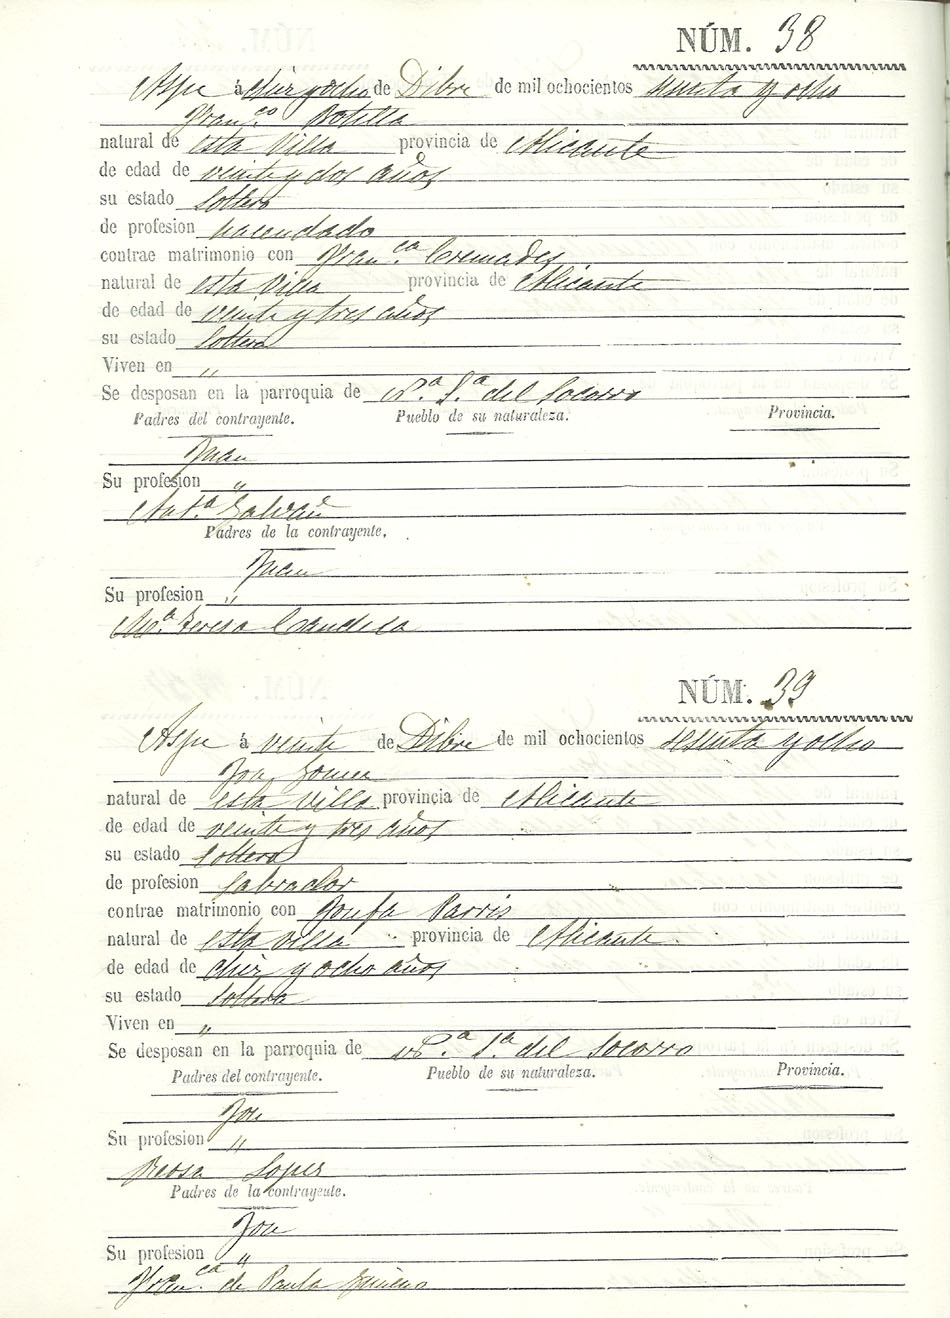 NÚM. 38
Aspe á diez y ocho de Dibre de mil ochocientos sesenta y ocho
Fran.co Botella
natural de esta Villa provincia de Alicante
de edad de veinte y dos años
su estado Soltero
de profesion hacendado
contrae matrimonio con Fran.ca Cremades
natural de esta Villa provincia de Alicante
de edad de veinte y tres años
su estado Soltera
Viven en "
Se desposan en la parroquia de N.a S.a del Socorro
Padres del contrayente. Pueblo de su naturaleza. Provincia.
Juan
Su profesion "
Ant.a Galvañ
Padres de la contrayente.
Juan
Su profesion "
M.a Teresa Candela
NÚM. 39
Aspe á veinte de Dibre de mil ochocientos sesenta y ocho
Jose Gomez
natural de esta Villa provincia de Alicante
de edad de veinte y tres años
su estado Soltero
de profesion Labrador
contrae matrimonio con Josefa Parris
natural de esta villa provincia de Alicante
de edad de diez y ocho años
su estado Soltera
Viven en "
Se desposan en la parroquia de N.a S.a del Socorro
Padres del contrayente. Pueblo de su naturaleza. Provincia.
Jose
Su profesion "
Lopez
Padres de la contrayente.
Jose
Su profesion "
Fran.ca de Paula